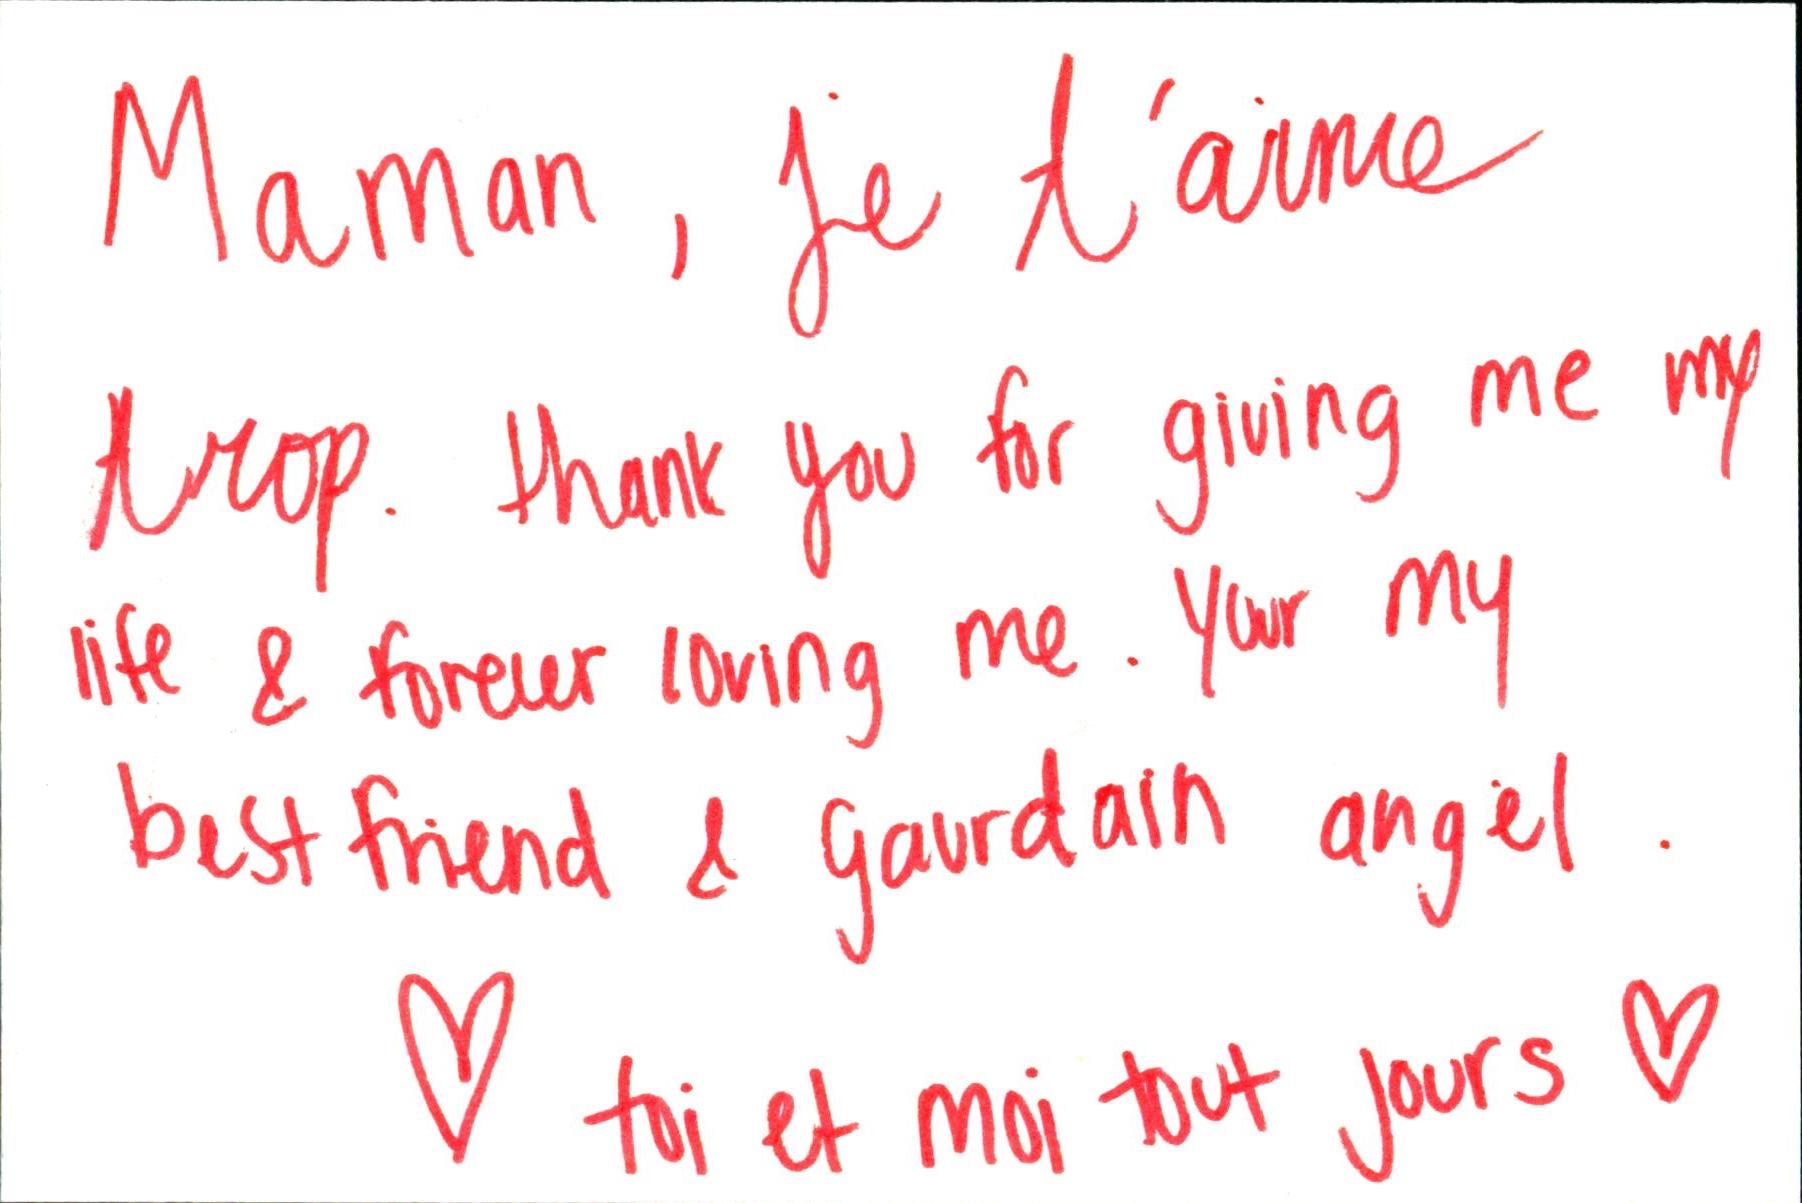 Maman, je t'aime
trop. thank you for giving me my
life & forever loving me. Your my
best friend & gaurdain angel.
♡ toi et moi tout jours ♡